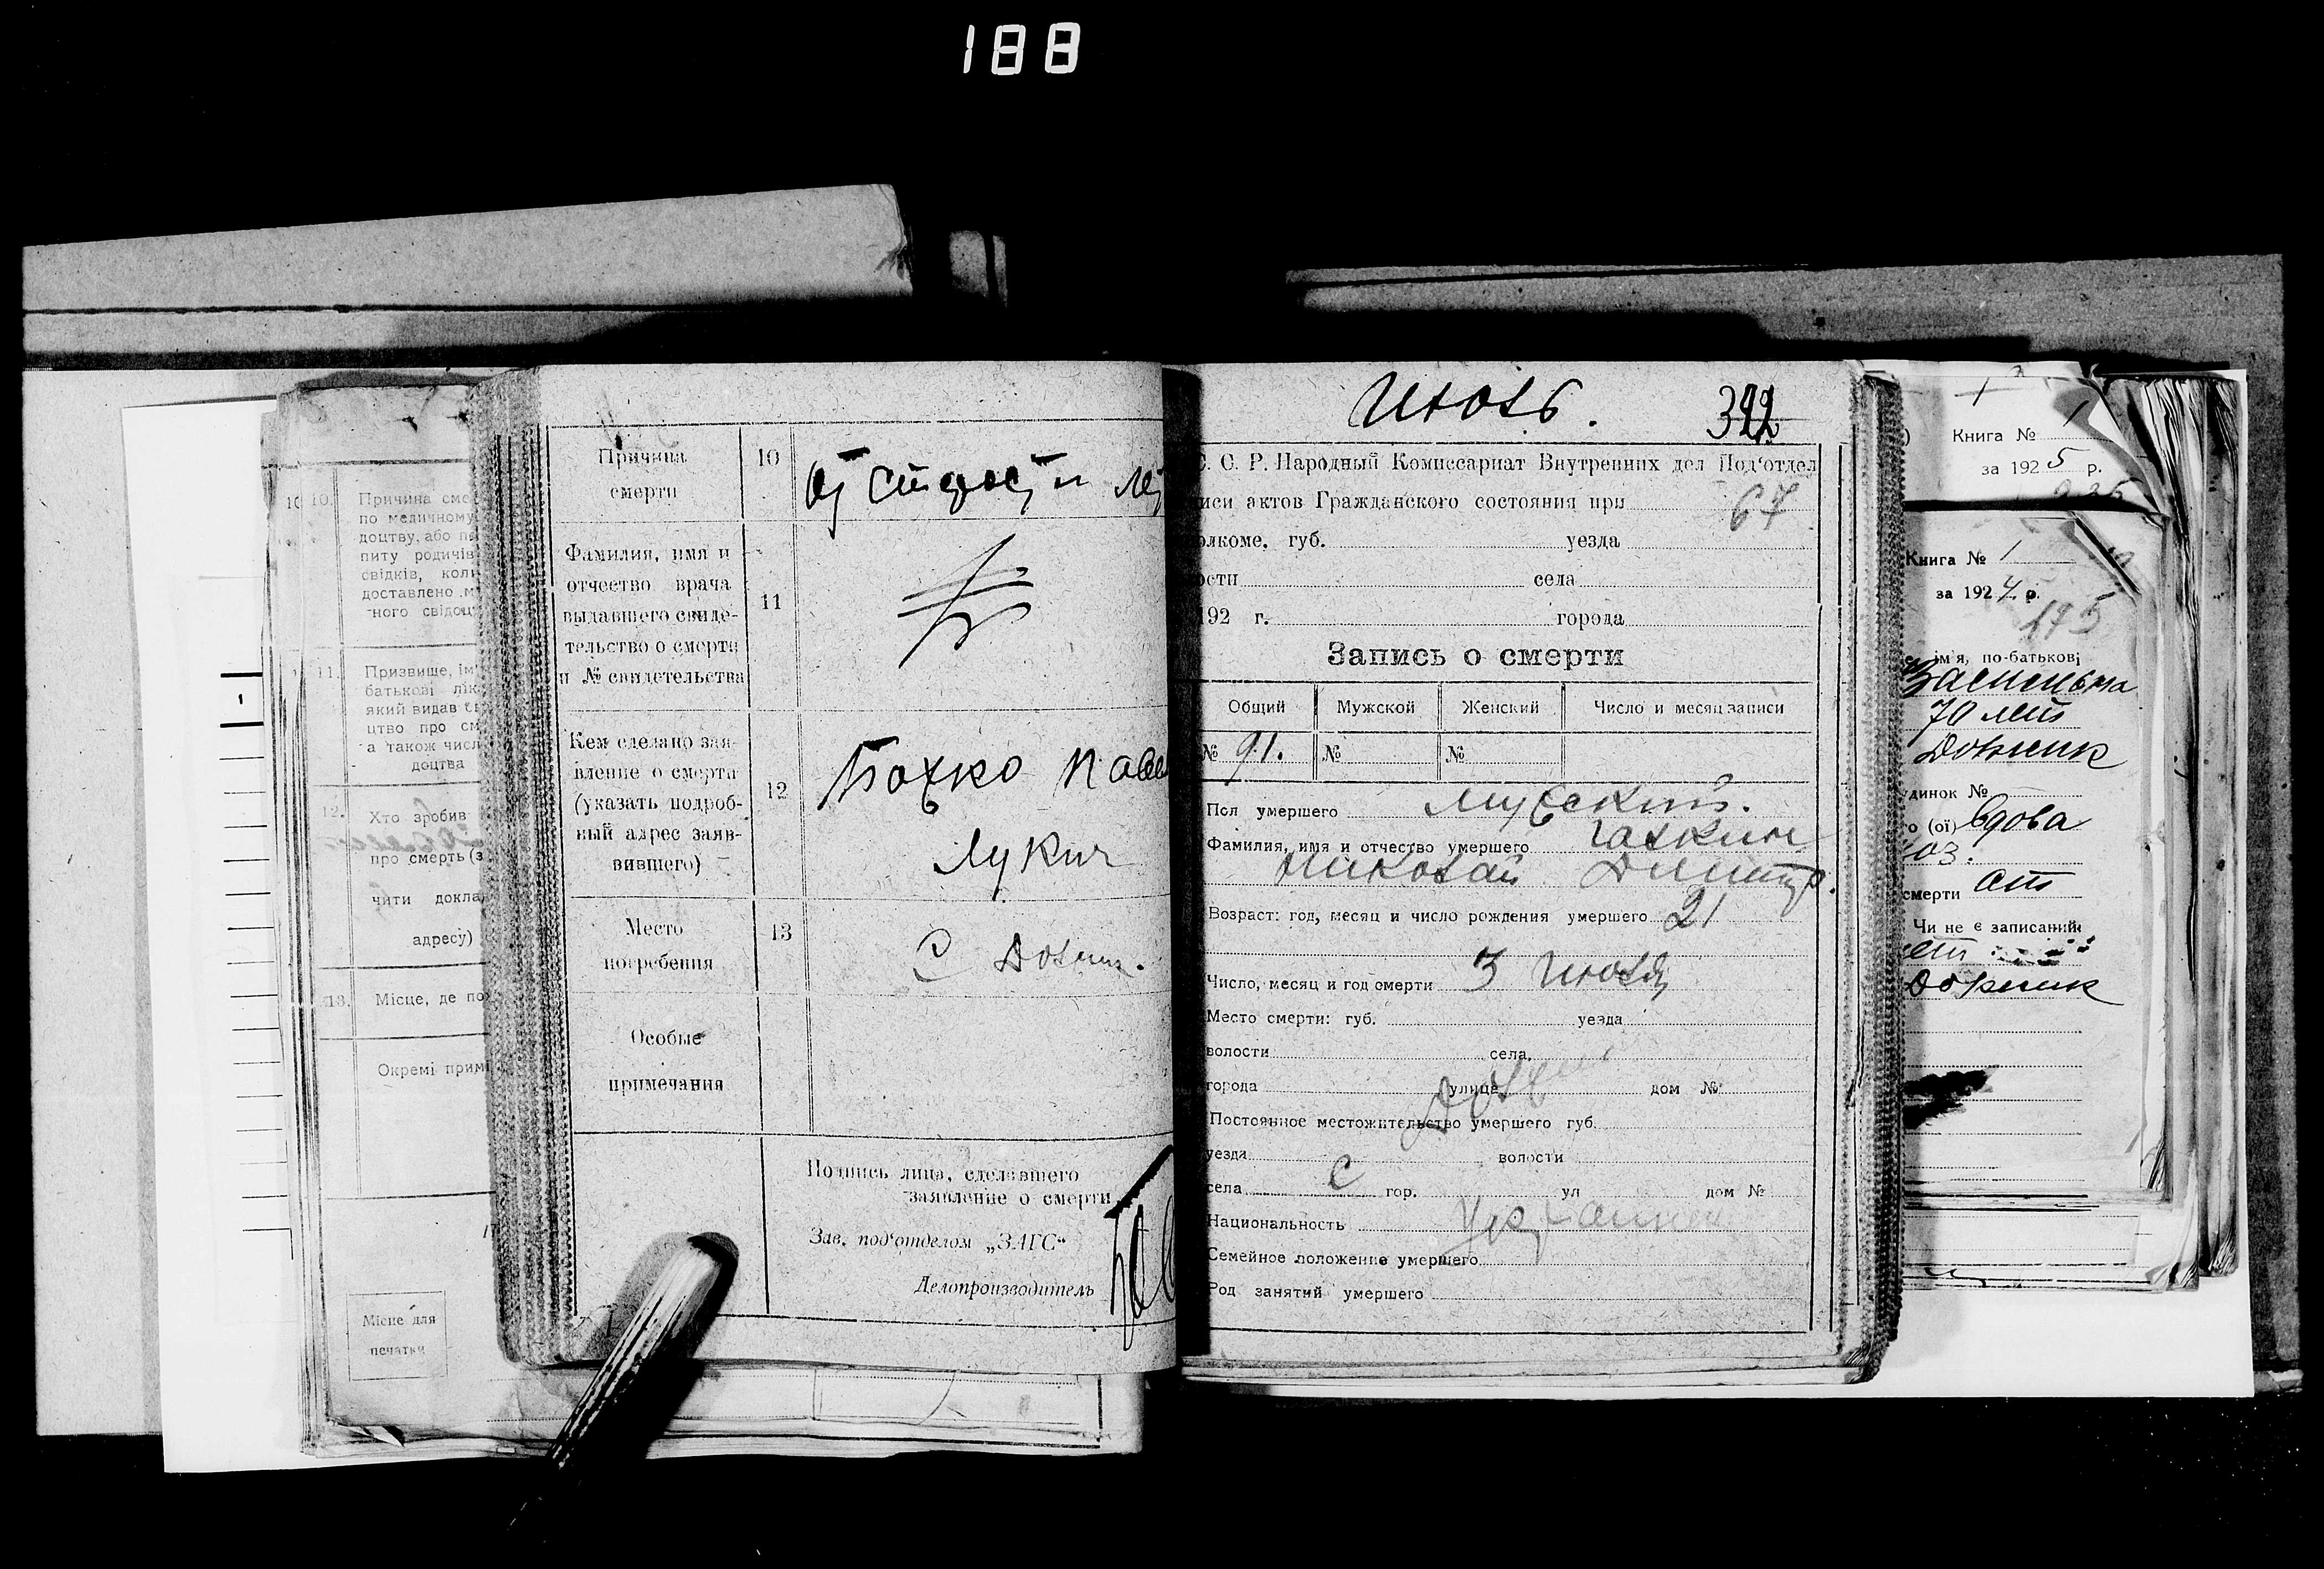 188
10.
Причина сме
по меличному
доцтву, або п
питу родичів
свідків, кол
доставлено м
ного свідоц
11.
Призвище, ім
батькові лік
який видав с
цтво про см
а також числ
доцтва
12.
Хто зробив
про смерть (з
чити докла
адресу)
13.
Місце, де по
Окремі прим
Місце для
печатки
Причина
смерти
10
От старости
Фамилия, имя и
отчество врача
выдавшего свиде-
тельство о смерти
и № свидетельства
11
Кем сделано зая-
вление о смерти
(указать подроб-
ный адрес заяв-
вившего)
12
Божко Павел
Лукич
Место
погребения
13
С
Особые
примечания
Подпись лица, сделавшего
заявление о смерти
Зав. под'отделом „ЗАГС“
Делопроизводитель
Июль.
С. С. Р. Народный Комиссариат Внутренних дел Под'отдел
иси актов Гражданского состояния при
67
олкоме, губ. уезда
ости села
192 г. города
Запись о смерти
Общий Мужской Женский Число и месяц записи
№ 91. № №
Пол умершего Мужской.
Фамилия, имя и отчество умершего
Николай Дмитр.
Возраст: год, месяц и число рождения умершего 21
Число, месяц и год смерти 3 Июля
Место смерти: губ. уезда
волости села
города улица дом №
Постоянное местожительство умершего губ.
уезда волости
села С гор. ул дом №
Национальность
Семейное положение умершего
Род занятий умершего
Книга № 1
за 1925 р.
Книга № 1
за 1924 р.
175
ім'я, по-батькові
70 лет
динок №
о (ої) Вдова
смерти
Чи не є записаний